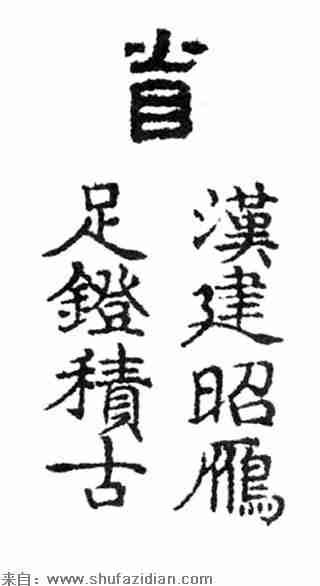 省
漢建昭雁
足鐙積古
来自：www.shufazidian.com